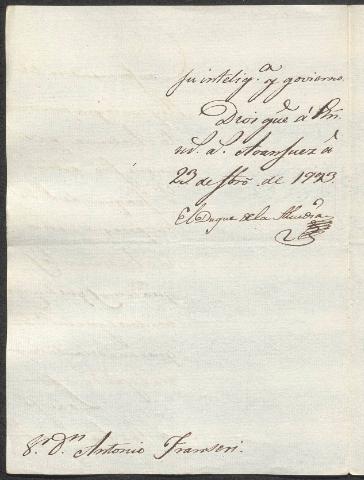 su intelig.ª y govierno.
Dios gue á Vm.
m.s a.s Aranjuez á
23 de Febro. de 1793.
El Duque de la Alcudia
S.r D.n Antonio Tramseri.